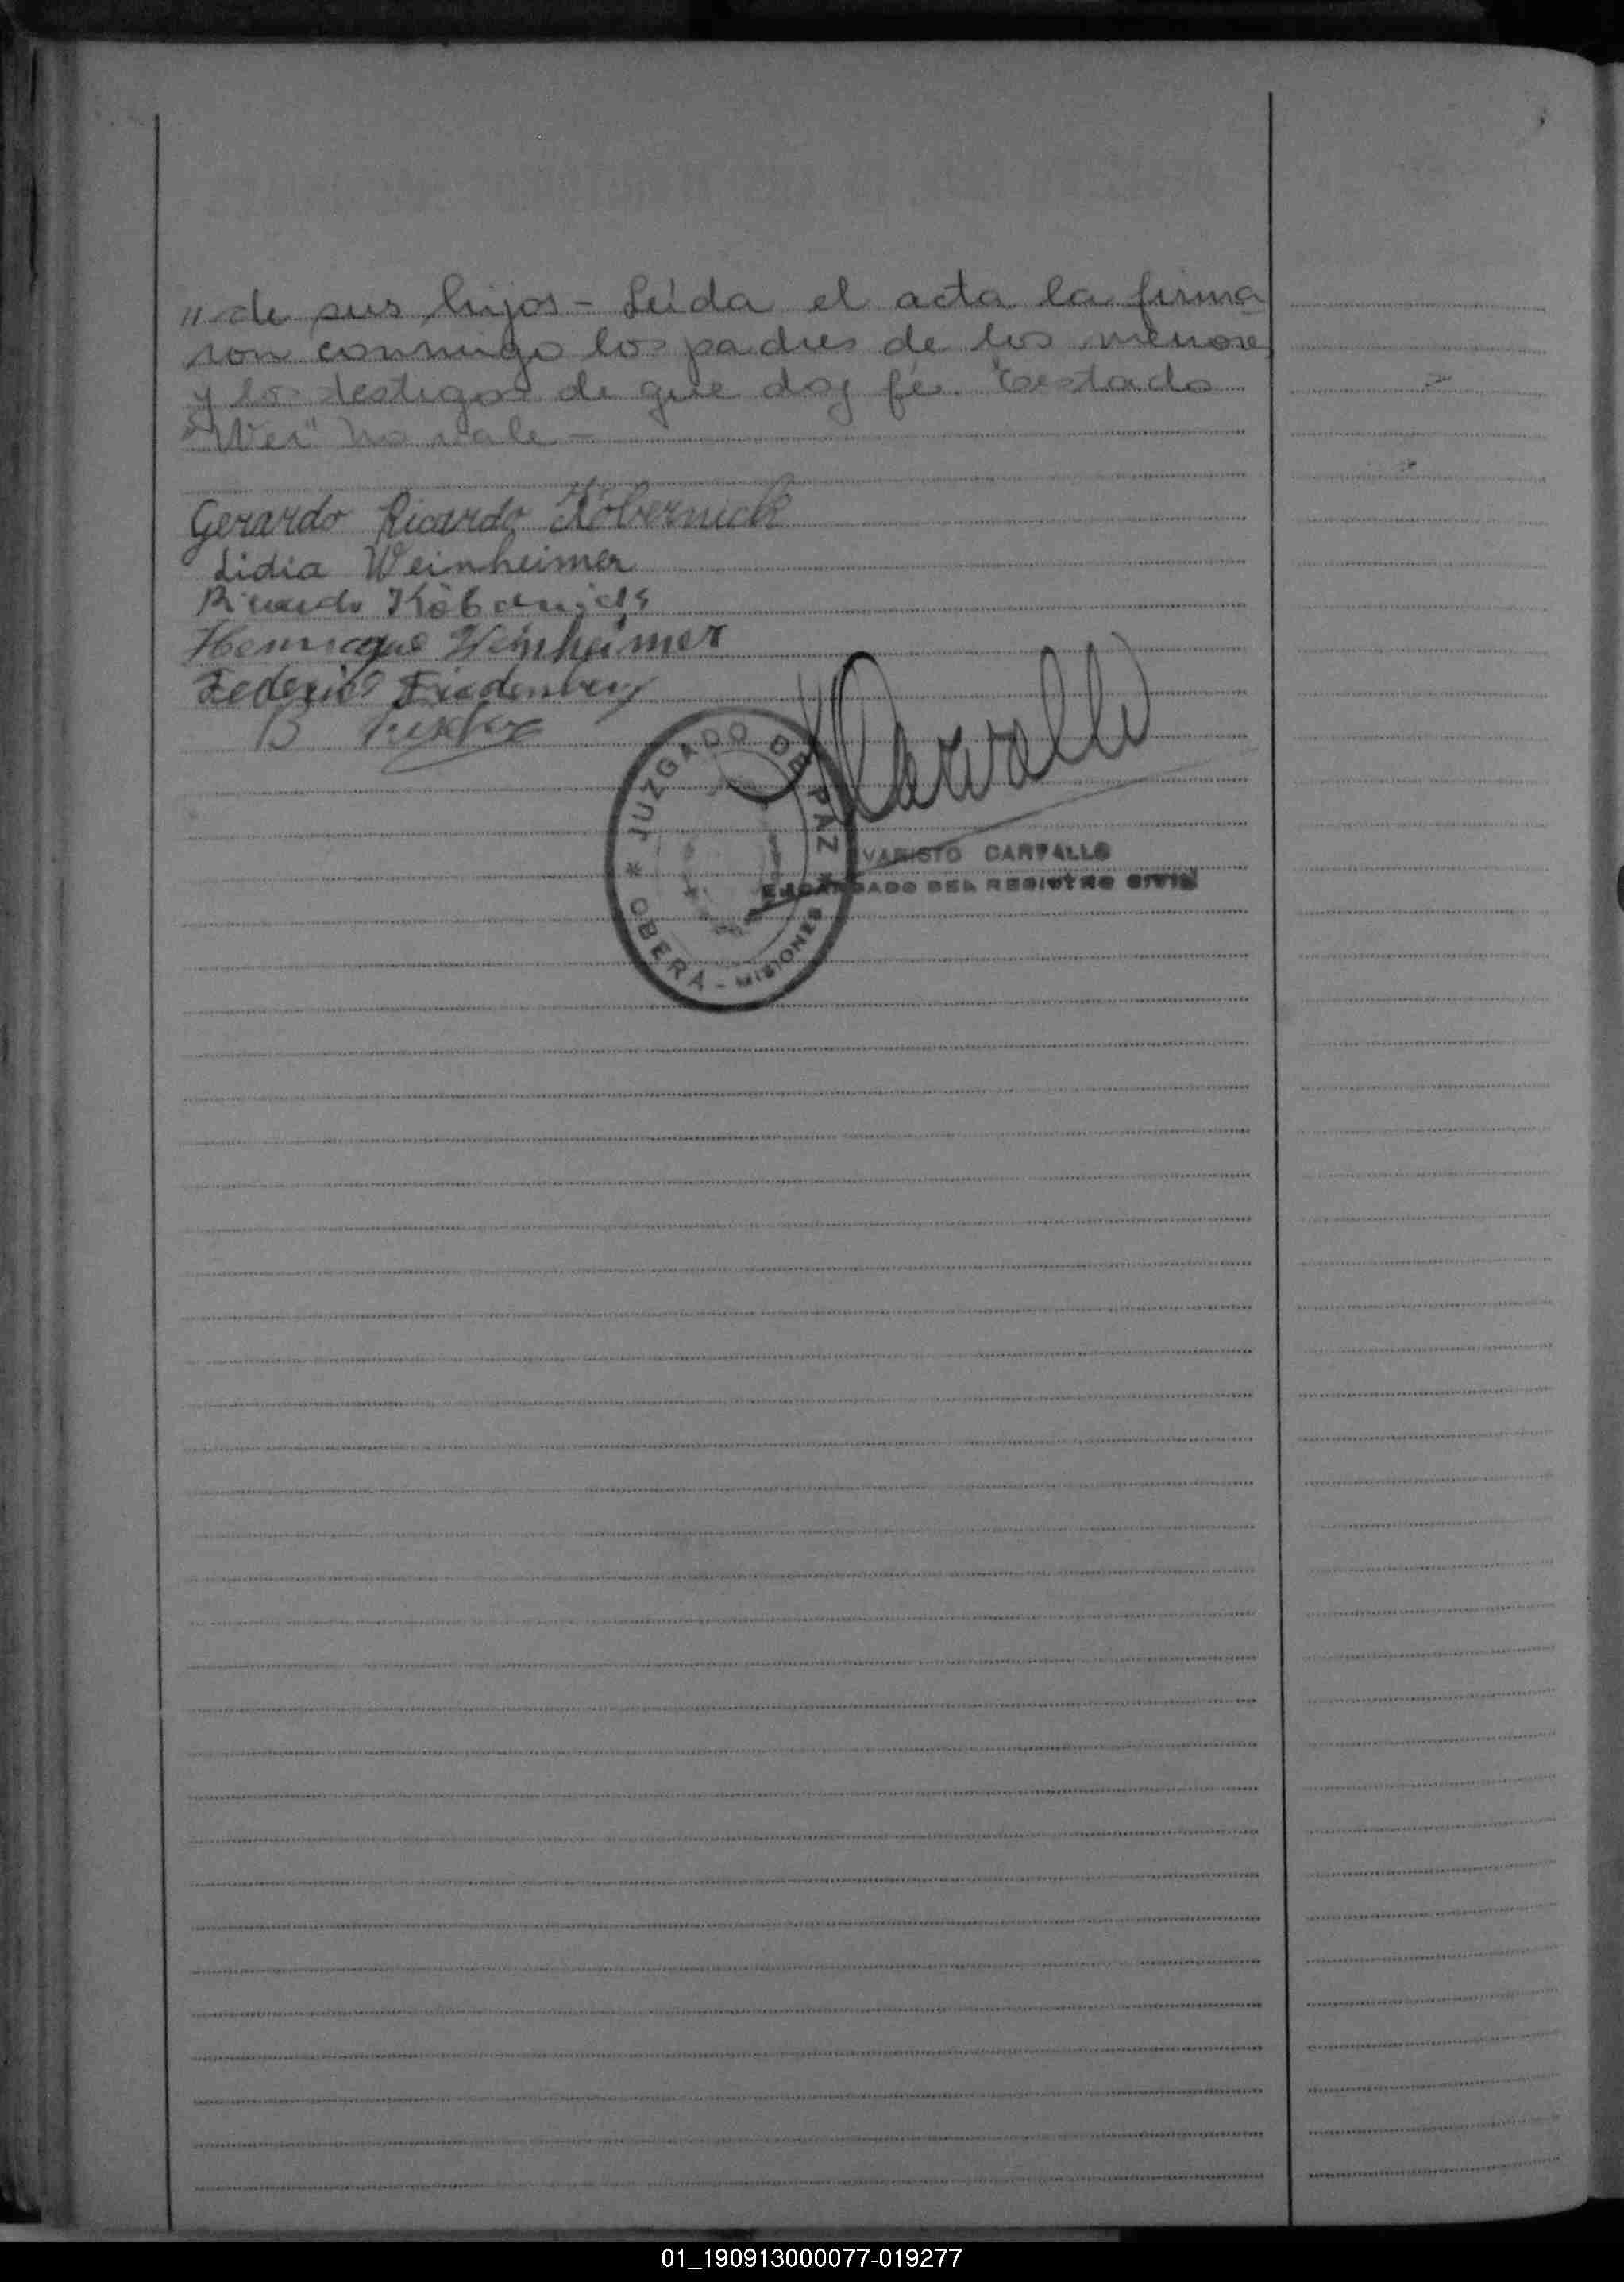 " de sus hijos - Leída el acta la firma
ron conmigo los padres de los menore
y los testigos de que doy fé. Testado
"Wei" no vale -
Gerardo Ricardo Köbernick
Lidia Weinheimer
Ricardo Köbernick
Henrique Weinheimer
Federico Friedenberg
B
Carvallo
JUZGADO DE PAZ
* OBERÁ - MISIONES *
VARISTO CARVALLO
ENCARGADO DEL REGISTRO CIVIL
01_190913000077-019277